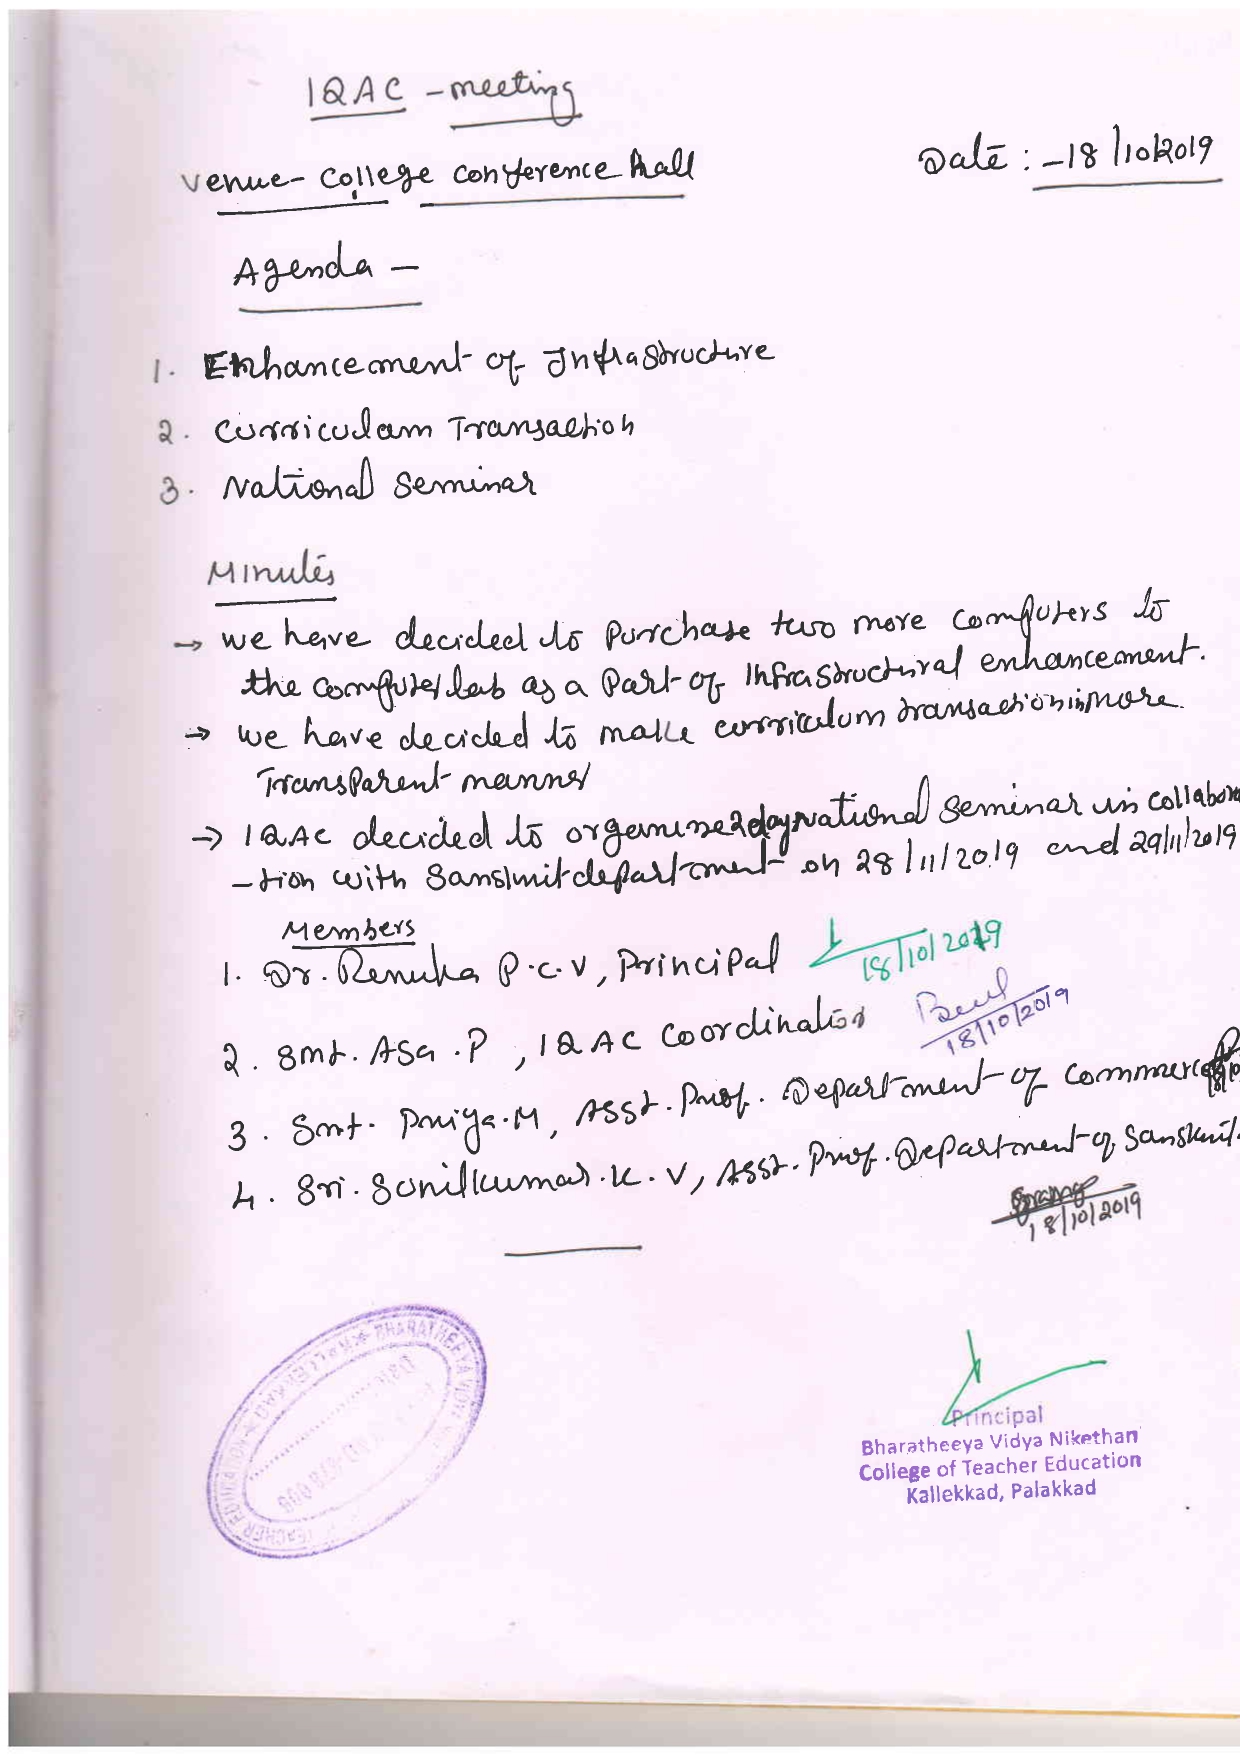 IQAC - meeting
Venue - College Conference Hall
Date : - 18/10/2019
Agenda -
1. Enhancement of Infrastructure
2. Curriculam Transaction
3. National Seminar
Minutes
→ we have decided to Purchase two more computers to
the computer lab as a Part of Infrastructural enhancement.
→ we have decided to make curriculum transaction in more
Transparent manner
→ IQAC decided to organise 2 day National Seminar in collabora
-tion with Sanskrit department on 28/11/2019 and 29/11/2019
Members
1. Dr. Renuka P.C.V, Principal
18/10/2019
2. Smt. Asa .P , IQAC Coordinator
18/10/2019
3. Smt. Priya.M, Asst. Prof. Department of Commerce
4. Sri. Sunilkumar.K.V, Asst. Prof. Department of Sanskrit
18/10/2019
BHARATHEEYA VIDYA
TEACHER EDUCATION
Principal
Bharatheeya Vidya Nikethan
College of Teacher Education
Kallekkad, Palakkad